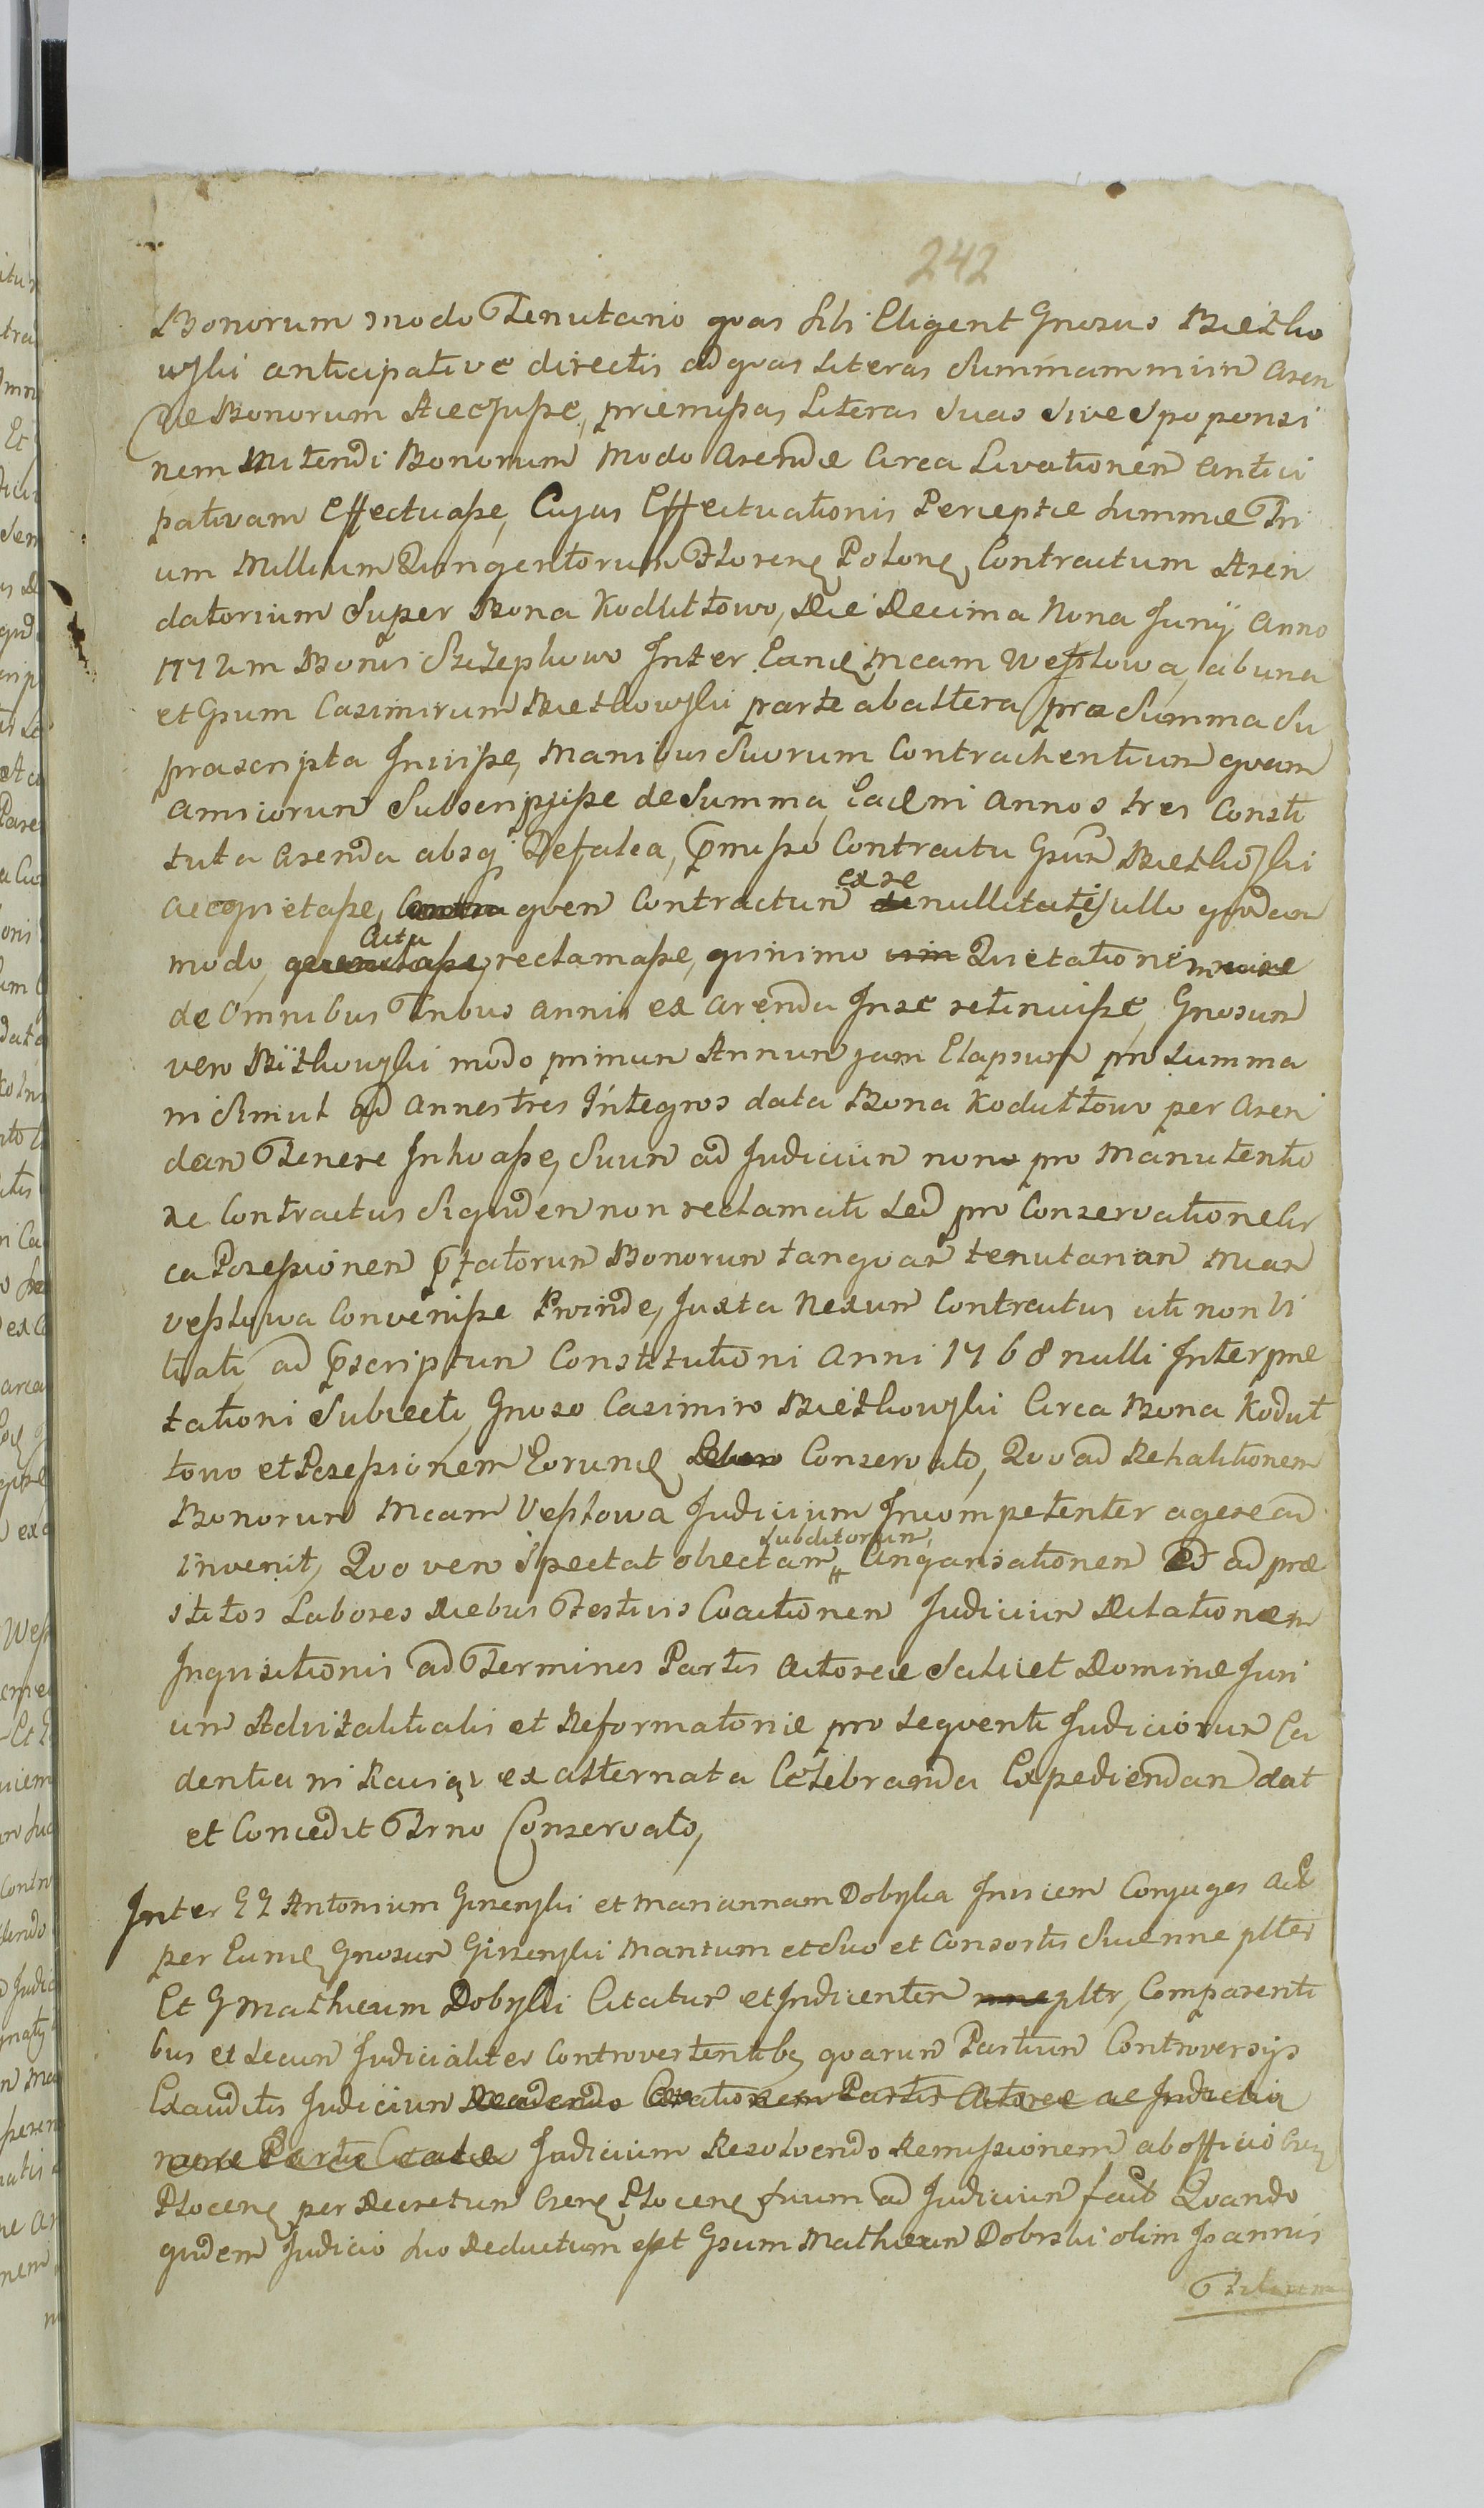 242
Bonorum modo Tenutario quas sibi Eligent Gnosus Bietko
wski anticipative directis ad quas Literas Summam miin Aren
dæ Bonorum Accepisse, præmissas Literas Suas Sive Spoponsi
nem Mitendi Bonorum modo Arendæ Circa Livationem Antici
pativam Effectuasse, Cujus Effectuationis Perceptæ Summæ Tri
um Millium Quingentorum Floreng Polong, Contractum Aren
datorium Super Bona Koditłowo, Die Decima Nona Junÿ Anno
1772 im Bonis Szczepkowo Inter Eand Mcam Wessłowa, ab una
et Gsum Casimirum Bietkowski parte ab altera præ Summa Su
prascripta Inivisse, Manibus Suorum Contrachentium quam
Amicorum Subscripsisse de Summa, Eadmi Annos tres Consti
tuta Arenda absq Defalca, p̃misso Contractu Gsum Bietkowski
Acquietasse, quem Contractum ex se nullitatis ullo quodam
modo, Actu reclamasse, quinimo Quietationem
de Omnibus Tribus Annis ex Arenda In se retinuisse, Gnosum
vero Bitkowski modo primum Annum jam Elapsum pro Summa
ni Simul ad Annos tres Integros data Bona Kodutłowo per Aren
dam Tenere Inhoasse, Suum ad Judicium non pro Manutentio
ne Contractus Siquidem non reclamati Sed pro Conservatione Cir
ca Possessionem p̃fatorum Bonorum tanquam tenutarium Mcam
Vessłowa Convenisse Proinde, Juxta Nexum Contractus uti non Vi
tiati, ad p̃scriptum Constitutioni Anni 1768 nulli Interpræ
tationi Subiecti, Gnoso Casimiro Bietkowski Circa Bona Kodut
towo et Possessionem Eorund Conservato, Quo ad Rehabitionem
Bonorum Mcam Vessłowa Judicium Incompetenter agere ad
invenit, Quo vero Spectat obiectam subditorum, Angarisationem Et ad præ
stitos Labores Diebus Festivis Coactionem Judicium Dilationem
Inquisitionis ad Terminos Partis Actoreæ Scilicet Dominæ Juri
um Advitalitialis et Reformatoriæ pro Sequenti Judiciorum Ca
dentia ni ex alternata Celebranda Expediendam dat
et Concedit Trno Conservato,
Inter GG Antonium Girzynski et Mariannam Dobska Invicem Conjuges Act
per Eund Gnosum Girzynski Maritum et Suo et Consortis Suæ nne pltes
Et G Mathæum Dobski Citatum et Indicenter pltr, Comparenti
bus et Secum Judicialiter Controvertentibq quarum Partium Controversijs
Exauditis Judicium
Judicium Resolvendo Remissionem ab officio
Ploceng per Decretum Ploceng suum ad Judicium fact Quando
quidem Judicio Suo Deductum est Gsum Mathæum Dobrski olim Joannis
Filium